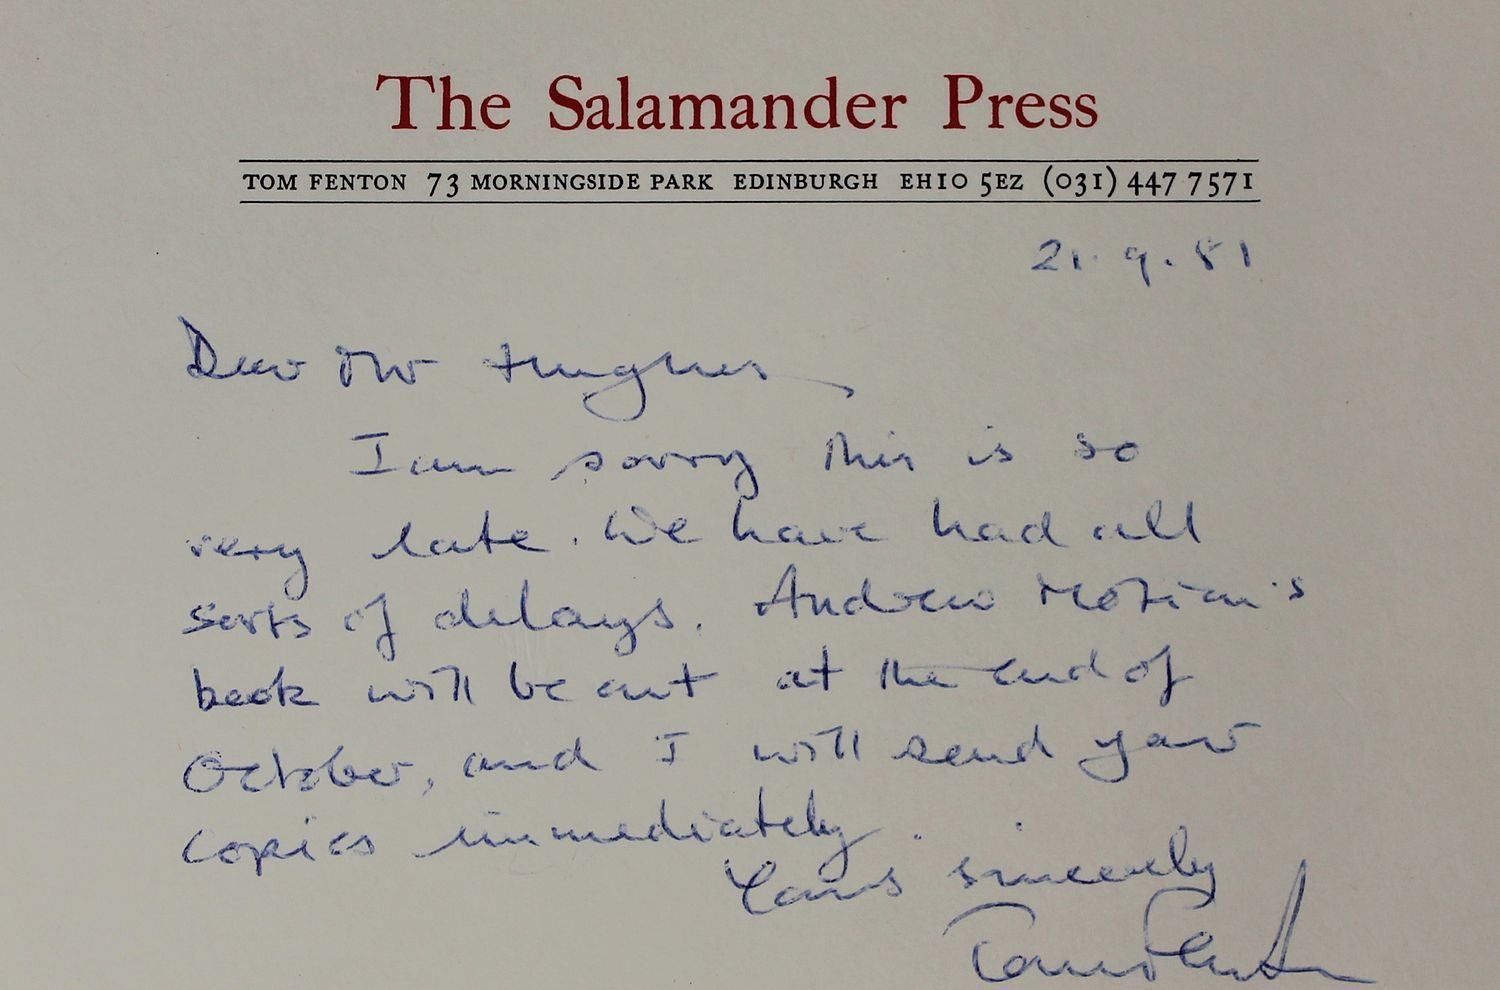 The Salamander Press
TOM FENTON 73 MORNINGSIDE PARK EDINBURGH EH10 5EZ (031) 447 7571
21.9.81
Dear Mr Hughes
I am sorry this is so
very late. We have had all
sorts of delays. Andrew Motion's
book will be out at the end of
October, and I will send your
copies immediately.
Yours sincerely
Tom Fenton